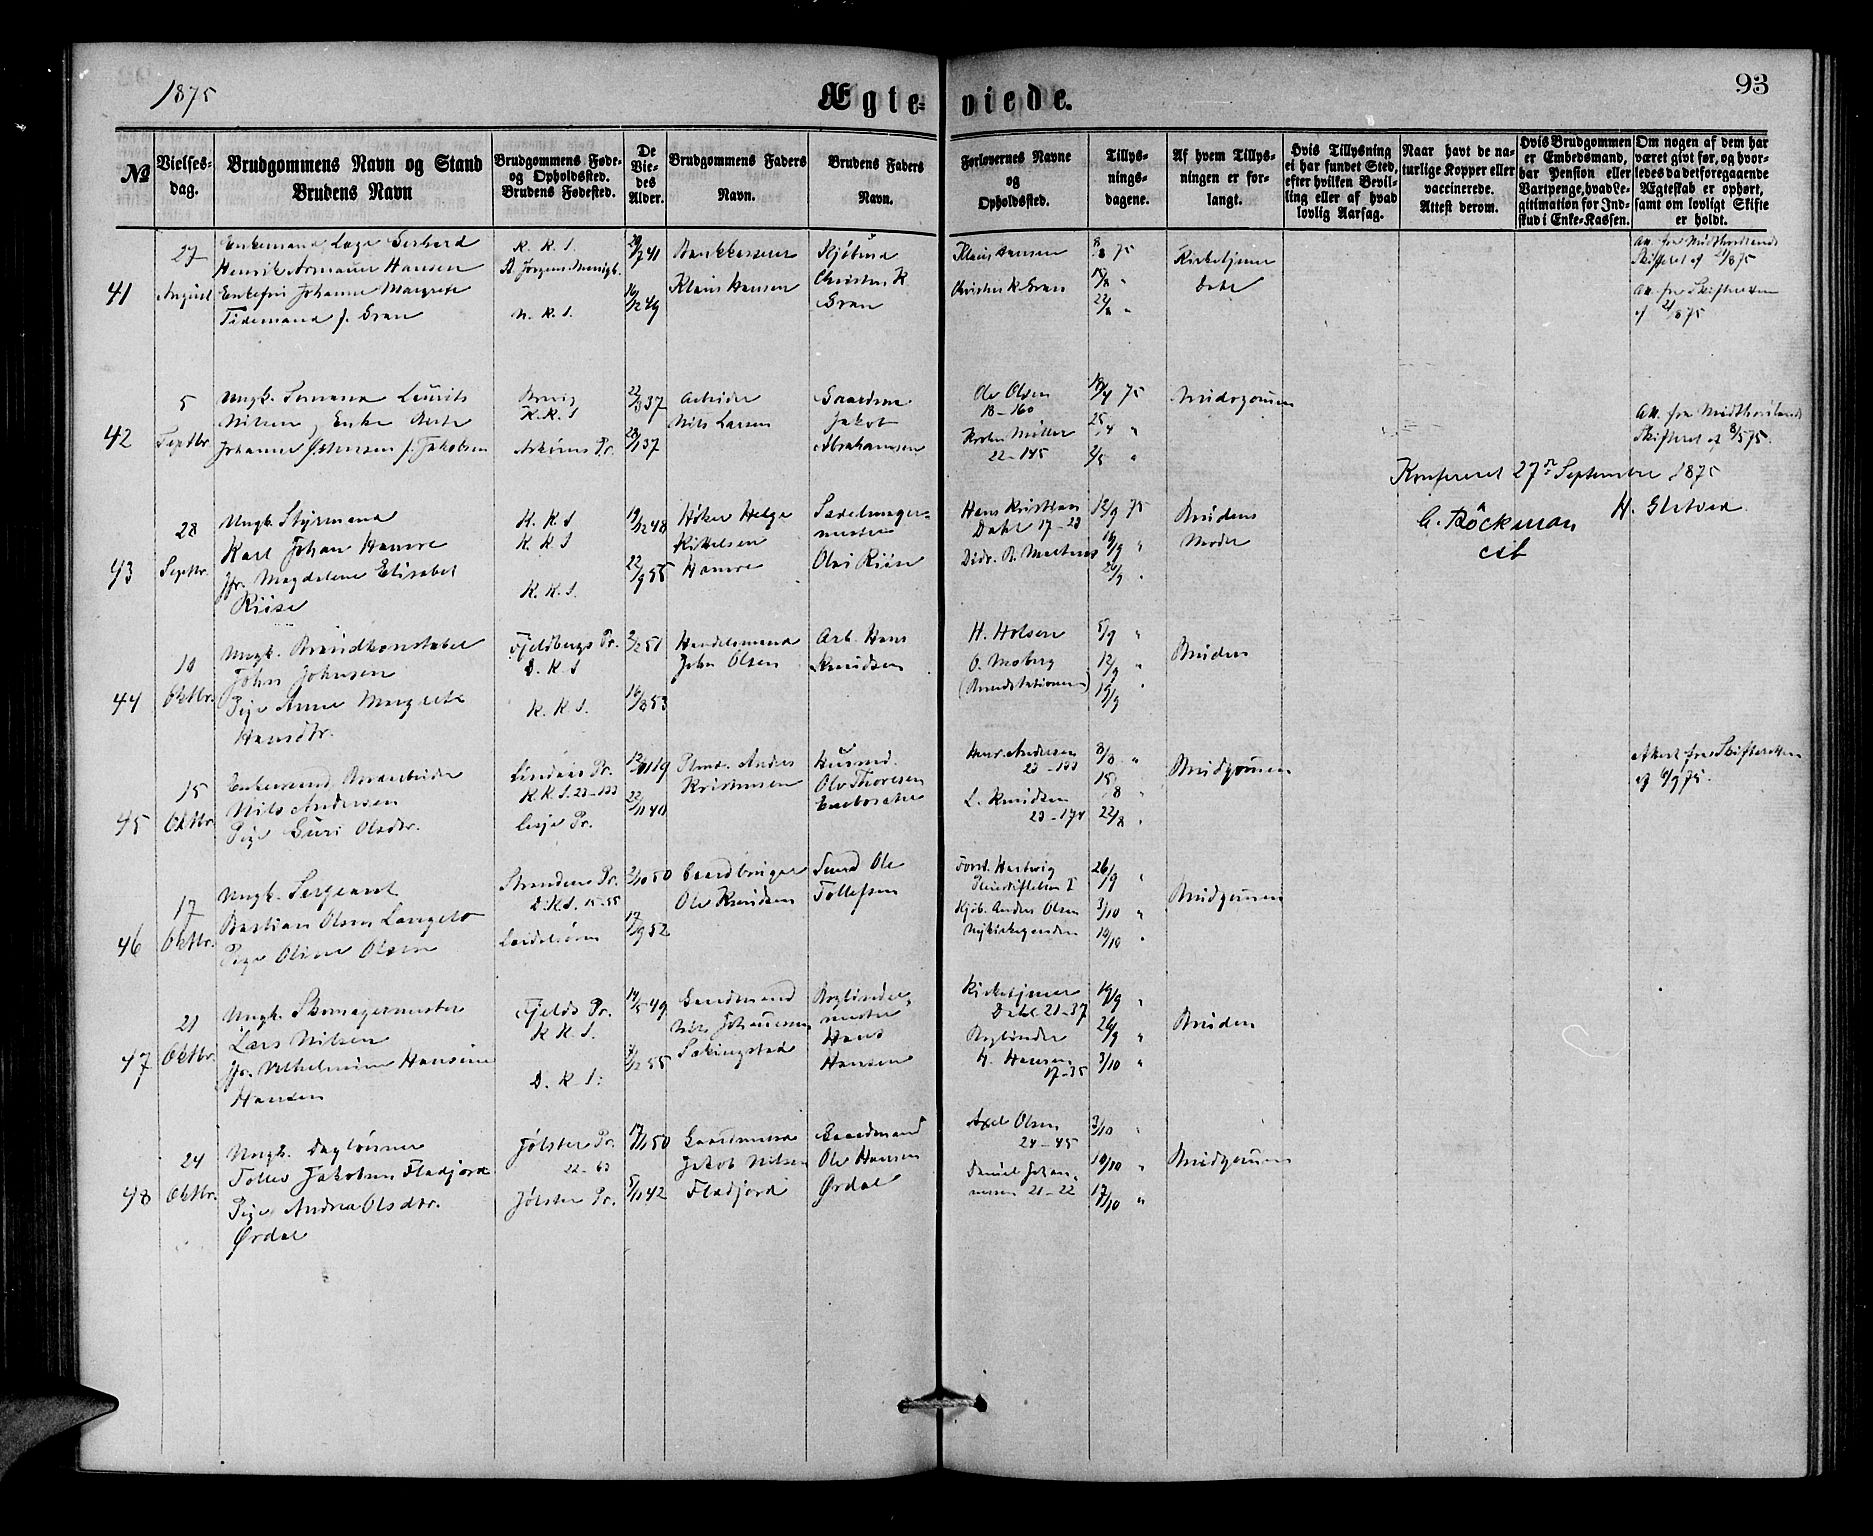 1875
93
Ægteviede.
№
Vielsesdag.
Brudgommens Navn og Stand
Brudens Navn
Brudgommens Føde- og Opholdssted.
Brudens Fødested.
De Viedes Alder.
Brudgommens Faders Navn.
Brudens Faders Navn.
Forlovernes Navne og Opholdssted.
Tillysningsdagene.
Af hvem Tillysningen er forlangt.
Hvis Tillysning ei har fundet Sted, efter hvilken Bevilling eller af hvad lovlig Aarsag.
Naar havt de naturlige Kopper eller vaccinerede. Attest derom.
Hvis Brudgommen er Embedsmand, har Pension eller Vartpenge, hvad Legitimation for Indskud i Enke-Kassen.
Om nogen af dem har været givt før, og hvorledes da det foregaaende Ægteskab er ophørt, samt om lovligt Skifte er holdt.
41
27 August
Enkemand Læge Gerhard
Henrik Armauer Hansen
Enkefru Johanne Margrete
Tidemand f. Gran
K. K. S.
St. Jørgens Menigh.
N. K. S.
29/7 41
Bankkasserer
Klaus Hansen
Kjøbmd
Christen K
Gran
Klaus Hansen
Christen K. Gran
8/8 75
15/8 "
22/8 "
Kirketjener
Dahl
Att. fra Midthordlands
Skifteret af 21/8 75
Att. fra Skifteretten
af 21/8 75
42
5 Septbr
Ungk. Sømand Laurits
Nilsen, Enke Berte
Johanne Østensen f. Jakobsen
Brevig
K. K. S
Askøens Pr.
22/8 37
Arbeider
Nils Larsen
Gaardm.
Jakob
Abrahamsen
Ole Olsen
18-160
Müller
22-145
18/4 75
25/4 "
2/5 "
Brudgommen
Att. fra Midthordlands
Skifteret af 8/5 75.
Konfereret 27de September 1875
C. Böckman
H. Gletved
43
28 Septbr.
Ungk. Styrmand
Karl Johan Hamre
Jfr. Magdalene Elisabet
Riise
K. K. S
K. K. S
K. K. S.
19/12 48
22/9 55
Høker Helge
Kittelsen
Hamre
Sadelmager-
mester
Ole Riise
Hans Kristian
Dahl 17-23
Didr. B. Martens
12/9 75
19/9 "
26/9 "
Brudens
Moder
44
10 Oktbr.
Ungk. Brandkonstabel
John Johnsen
Pige Anne Margrete
Hansdtr.
Fjeldbergs Pr.
D. K. S
K. K. S.
2/2 51
16/8 53
Handelsmand
John Olsen
Arb. Hans
Knudsen
H. Holsen
O. Moberg
(Brandstationen)
5/9 "
12/9 "
19/9 "
Bruden
45
15 Oktbr.
Enkemand Bryarbeider
Nils Andersen
Pige Guri Olsdtr.
Lindaas Pr.
K. K. S. 23-133
Lesje Pr.
22/11 40
Anders
Kristensen
Husmd.
Ole Thoresen
Andersen
23-133
L. Knudsen
23-174
8/8 "
15/8 "
22/8 "
Brudgommen
Attest fra Skifteretten
af 6/9 75.
46
17 Oktbr.
Ungk. Sergeant
Bastian Olsen Langelo
Pige Oline Olsen
Strandens Pr.
D. K. S. 15-55
2/10 50
17/9 52
Gaardbruger
Ole Knudsen
Smed Ole
Tollefsen
Hartwig
Pleiestiftelsen I
Kjøb. Anders Olsen
Nykirkegrunden
26/9 "
3/10 "
10/10 "
Brudgommen
47
21 Oktbr.
Ungk. Skomagermester
Lars Nilsen
Jfr. Vilhelmine Hansine
Hansen
Fjelds Pr.
K K S.
D. K. S.
14/5 49
Gaardmand
Nils Johannesen
Bogbinder-
mester
Hans
Hansen
Kirketjener
Dahl 21-37
Bogbinder
H. Hansen
17-35
19/9 "
26/9 "
3/10 "
Bruden
48
24 Oktbr.
Ungk. Dagløsner
Tollev Jakobsen Fladjord
Pige Andrea Olsdtr.
Ørdal
Jølster Pr.
22-63
Jølster Pr.
17/1 50
5/1 42
Gaardmand
Jakob Nilsen
Fladjord
Gaardmand
Ole Hansen
Ørdal
Axel Olsen
24-45
Daniel Johan-
nessen 21-22
3/10 "
10/10 "
17/10 "
Brudgommen